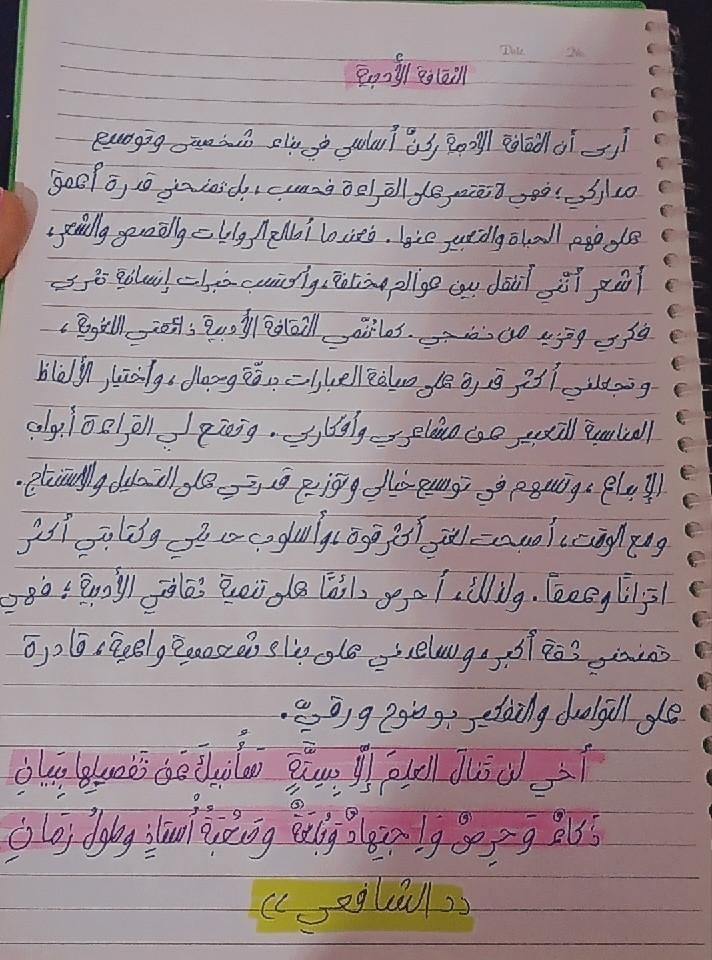 Date No.
الثقافة الأدبية
أرى أن الثقافة الأدبية ركنٌ أساسي في بناء شخصيتي وتوسيع
مداركي، فهي لا تقتصر على القراءة فحسب، بل تمنحني قدرة أعمق
على فهم الحياة والتعبير عنها. فعندما أطالع الروايات والقصص والشعر،
أشعر أنني أتنقل بين عوالم مختلفة، وأكتسب خبرات إنسانية تثري
فكري وتزيد من نضجي. كما تُنمّي الثقافة الأدبية ذائقتي اللغوية،
وتجعلني أكثر قدرة على صياغة العبارات بدقّة وجمال، وأختيار الألفاظ
المناسبة للتعبير عن مشاعري وأفكاري. وتفتح لي القراءة أبواب
الإبداع، وتسهم في توسيع خيالي وتعزيز قدرتي على التحليل والاستنتاج.
ومع الوقت، أصبحت لغتي أكثر قوة، وأسلوب حديثي وكتابتي أكثر
اتزانًا وعمقاً. ولذلك، أحرص دائمًا على تنمية ثقافتي الأدبية؛ فهي
تمنحني ثقة أكبر، وتساعدني على بناء شخصية واعية، قادرة
على التواصل والتفكير بوضوح ورقيّ.
أُخي لن تَنالَ العِلمَ إلّا بِسِتَّةٍ سَأُنبيكَ عَن تَفصيلِها بِبَيانِ
ذَكاءٌ وَحِرصٌ وَاِجتِهادٌ وَبُلغَةٌ وَصُحْبَةُ أُستاذٍ وَطولُ زَمانِ
((الشافعي))